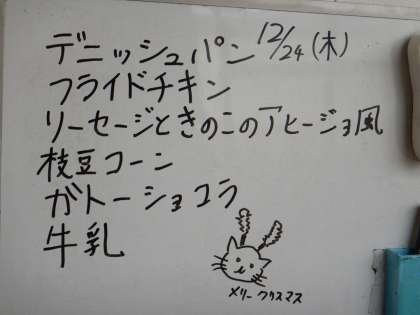 デニッシュパン 12/24(木)
フライドチキン
リーセージときのこのアヒージョ風
枝豆コーン
ガトーショコラ
牛乳
メリークリスマス